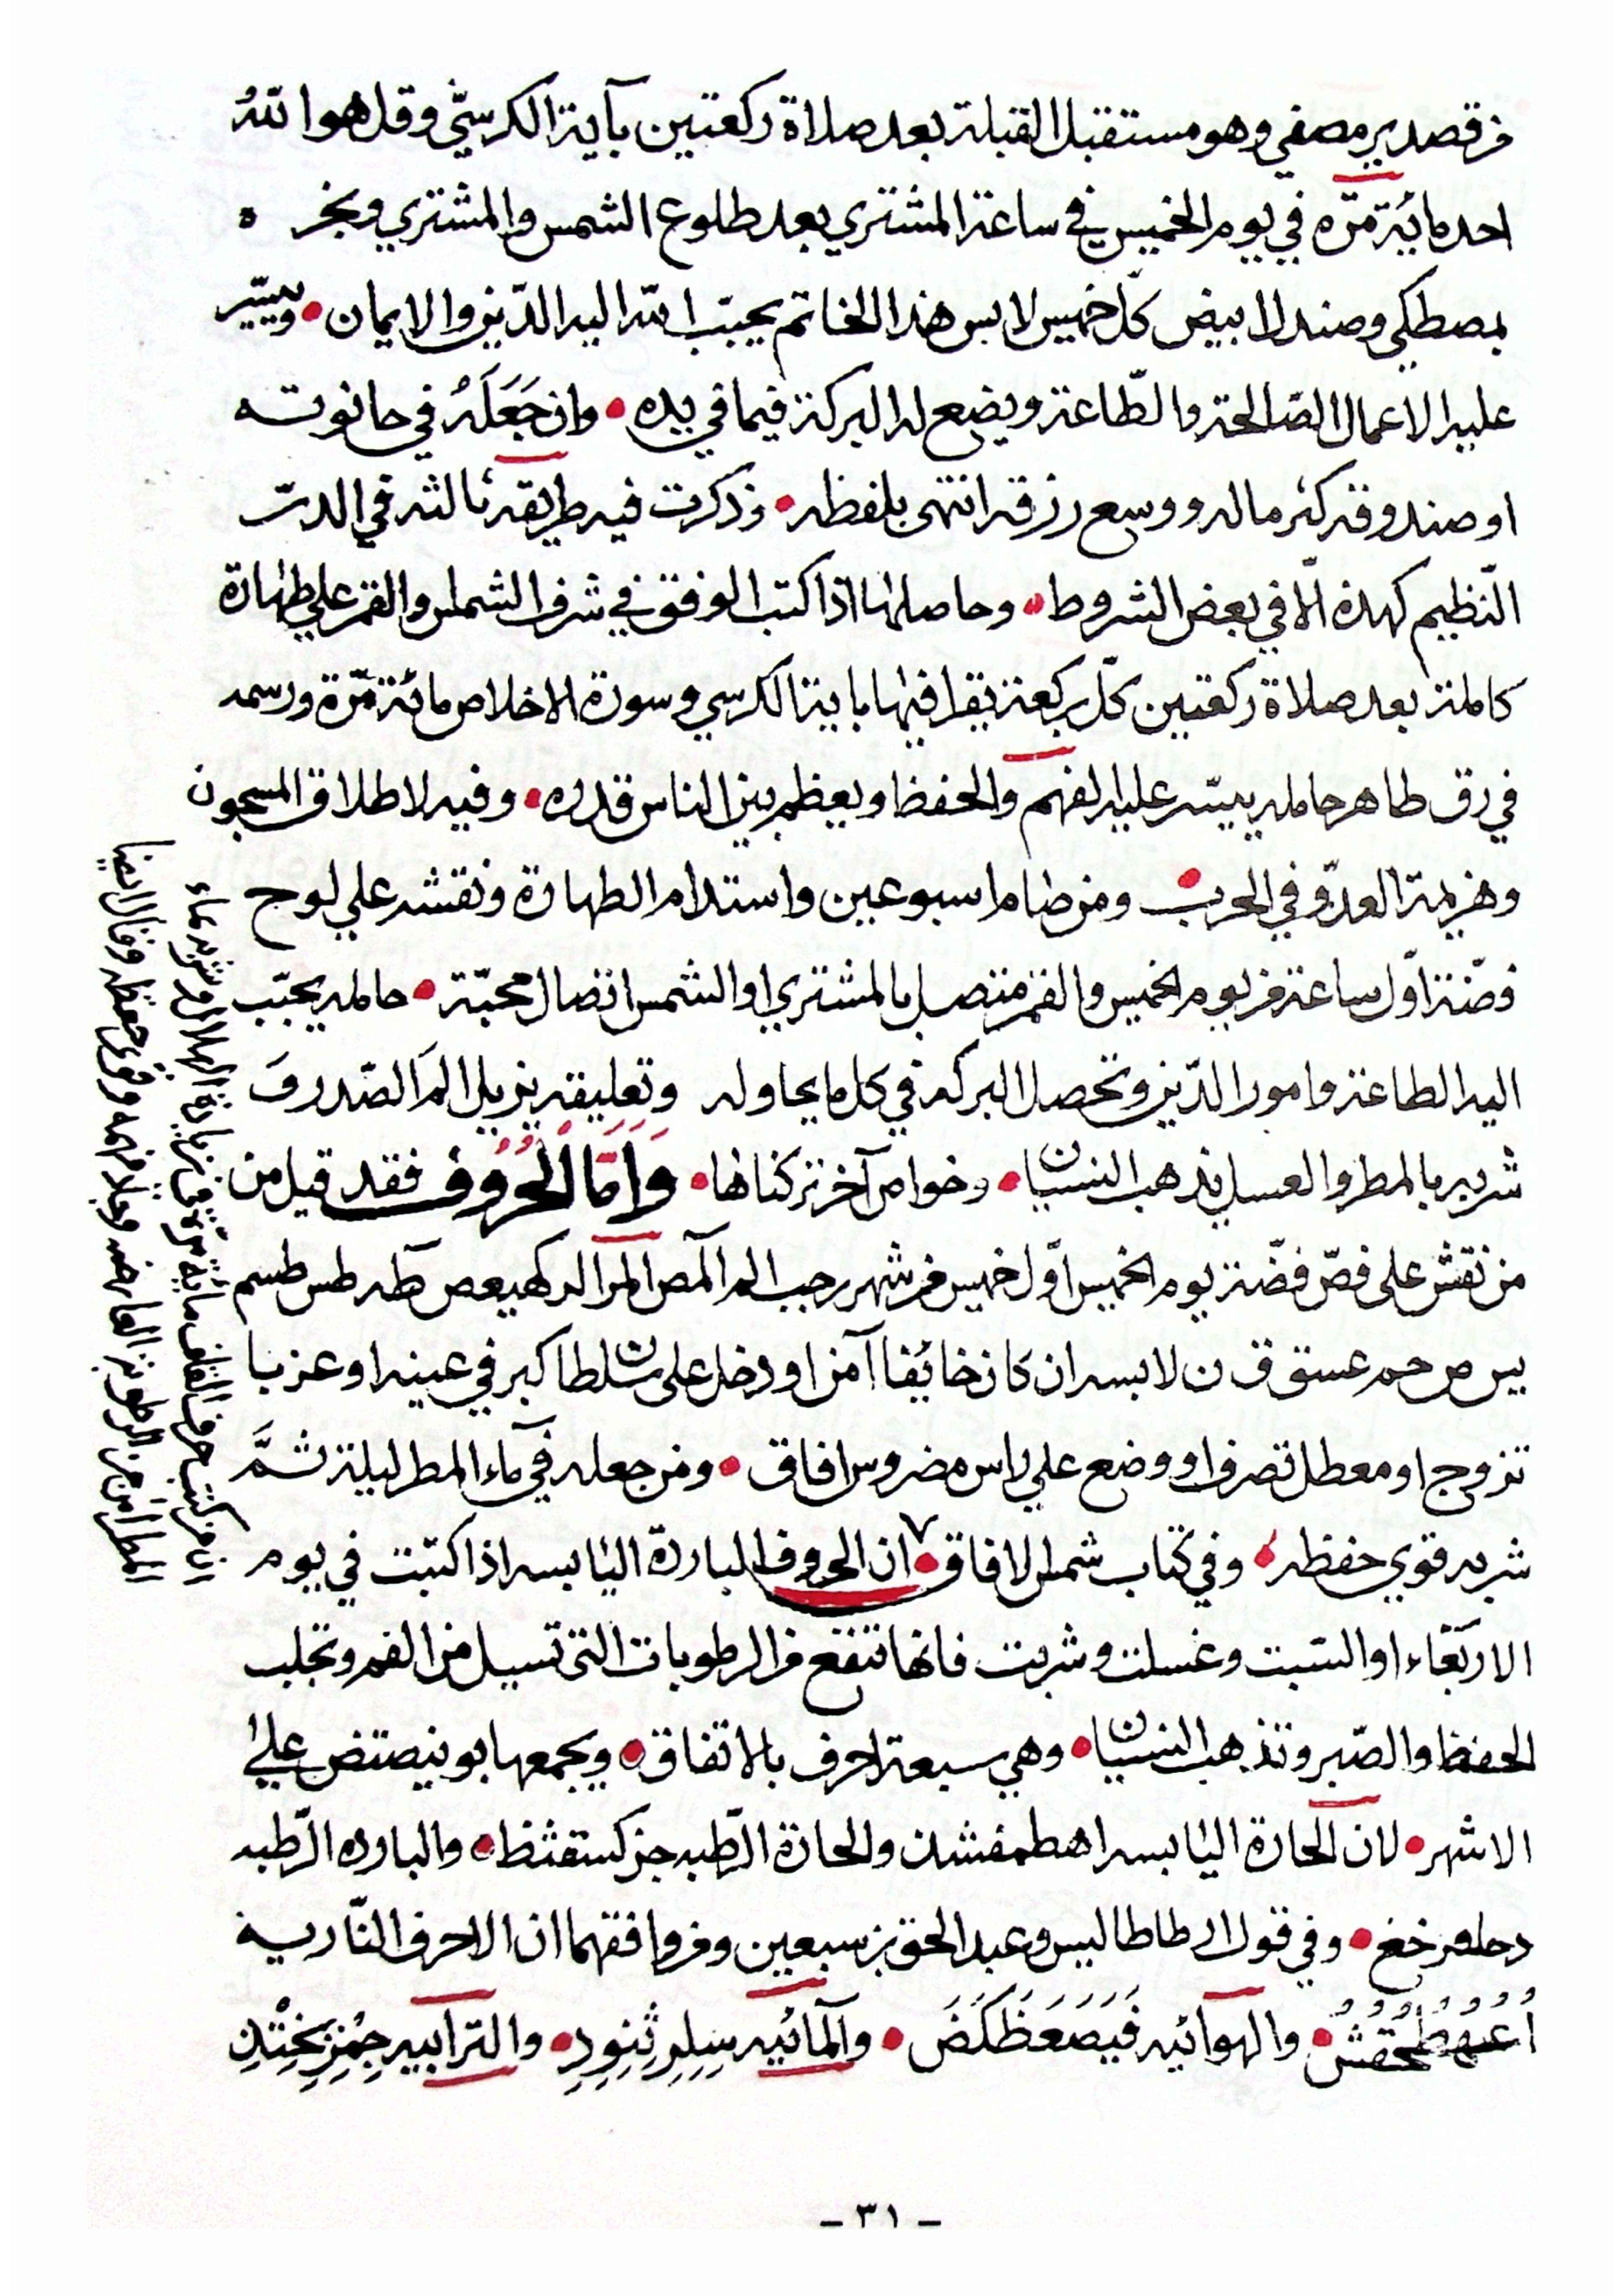 من قصدير مصفي وهو مستقبل القبلة بعد صلاة ركعتين بآية الكرسيّ وقل هو اللهُ
احد مائة مرّه في يوم الخميس في ساعة المشتري بعد طلوع الشمس والمشتري وبخره
بمصطكي وصندل ابيض كلّ خميس لابس هذا الخاتم يحبّب الله اليه الدّين والايمان • وييسّر
عليه الاعمال الصّالحة والطّاعة ويضع له البركة فيما في يده • وان جَعَلَهُ في حانوته
او صندوقه كثر ماله ووسع رزقه انتهى بلفظه • وذكرت فيه طريقه ثالثه في الدرّ
النّظيم كهذه الّا في بعض الشروط • وحاصلها اذا كتب الوفق في شرف الشمس والقمر علي طهارة
كاملة بعد صلاة ركعتين كلّ ركعة يقرا فيها باية الكرسي وسورة الاخلاص مائة مرّة ورسمه
في رق طاهر حامله ييسّر عليه الفهم والحفظ ويعظم بين الناس قدره • وفيه لاطلاق المسجون
وهزيمة العدوّ في الحرب • ومن صام اسبوعين واستدام الطهارة ونقشه علي لوح
فضّة اوّل ساعة من يوم الخميس والقمر متصل بالمشتري او الشمس اتصال محبّة • حامله يحبّب
اليه الطاعة وامور الدّين وتحصل البركه في كل ما يحاوله وتعليقه يزيل الم الصّدر وَ
شربه بالمطر والعسل يذهب النسيان • وخواص آخر تركناها • وَاَمَّا الْحُرُوف فقد قيل من
من نقش على فصّ فضّة يوم الخميس اوّل خميس من شهر رجب الم المص المر الر كهيعص طه طس طسم
يس ص حم عسق ق ن لابسه ان كان خائفا آمن او دخل على سلطان كبر في عينه او عزبا
تزوج او معطل تصرف او وضع علي راس مضروس افاق • ومن جعله في ماء المطر ليلة ثمَّ
شربه قوي حفظه • وفي كتاب شمس الافاق • ان الحروف الباردة اليابسه اذا كتبت في يوم
الاربعاء او السبت وغسلت وشربت فانها تنفع من الرطوبات التى تسيل من الفم وتجلب
الحفظ والصّبر وتذهب النسيان • وهي سبعة احرف بالاتفاق • ويجمعها بوينصتض علي
الاشهر • لان الحارة اليابسه اهطمفشذ والحارة الرّطبه جزكسقثظ • والبارده الرّطبه
دحلعرخغ • وفي قول ارطاطاليس وعبد الحق بن سبعين ومن وافقهما ان الاحرف النّاريه
والهوآئيه فَيَصَعَظَكَضَ • والمآئيه سِلِرِثِنِوِدِ • والترابيه
- ٣١ -